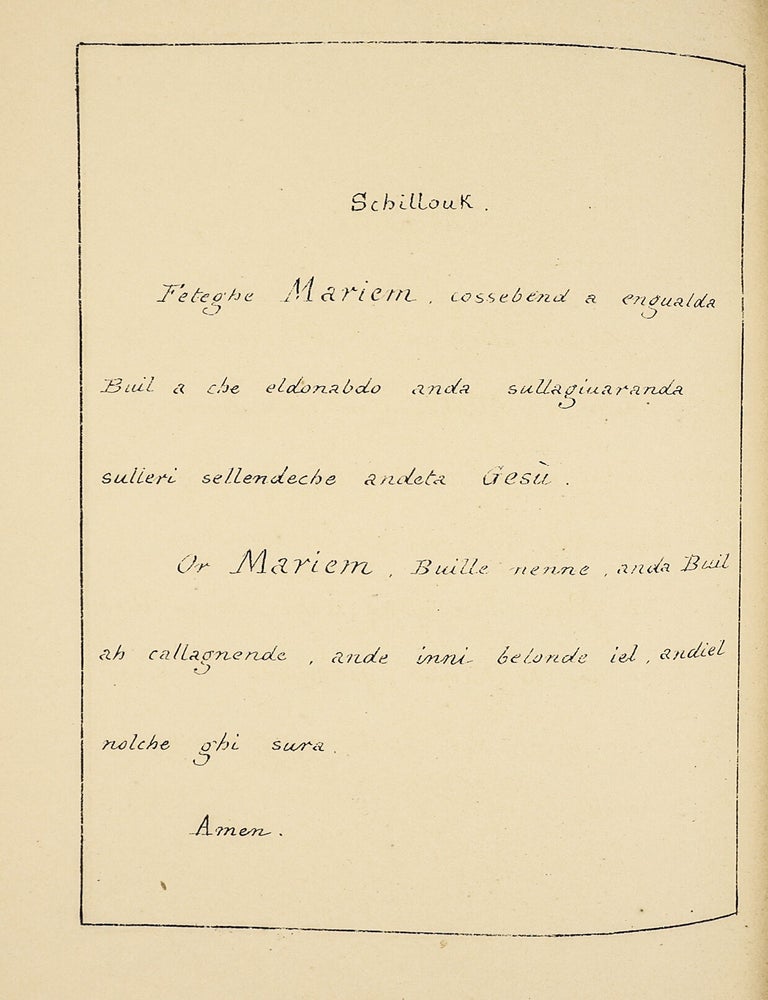 Schillouk.
Feteghe Mariem, cossebend a engualda
Buil a che eldonabdo anda sullagiuaranda
sulieri sellendeche andeta Gesù.
Or Mariem, Buille nenne, anda Buil
ah callagnende, ande inni belonde iel, andiel
nolche ghi sura.
Amen.